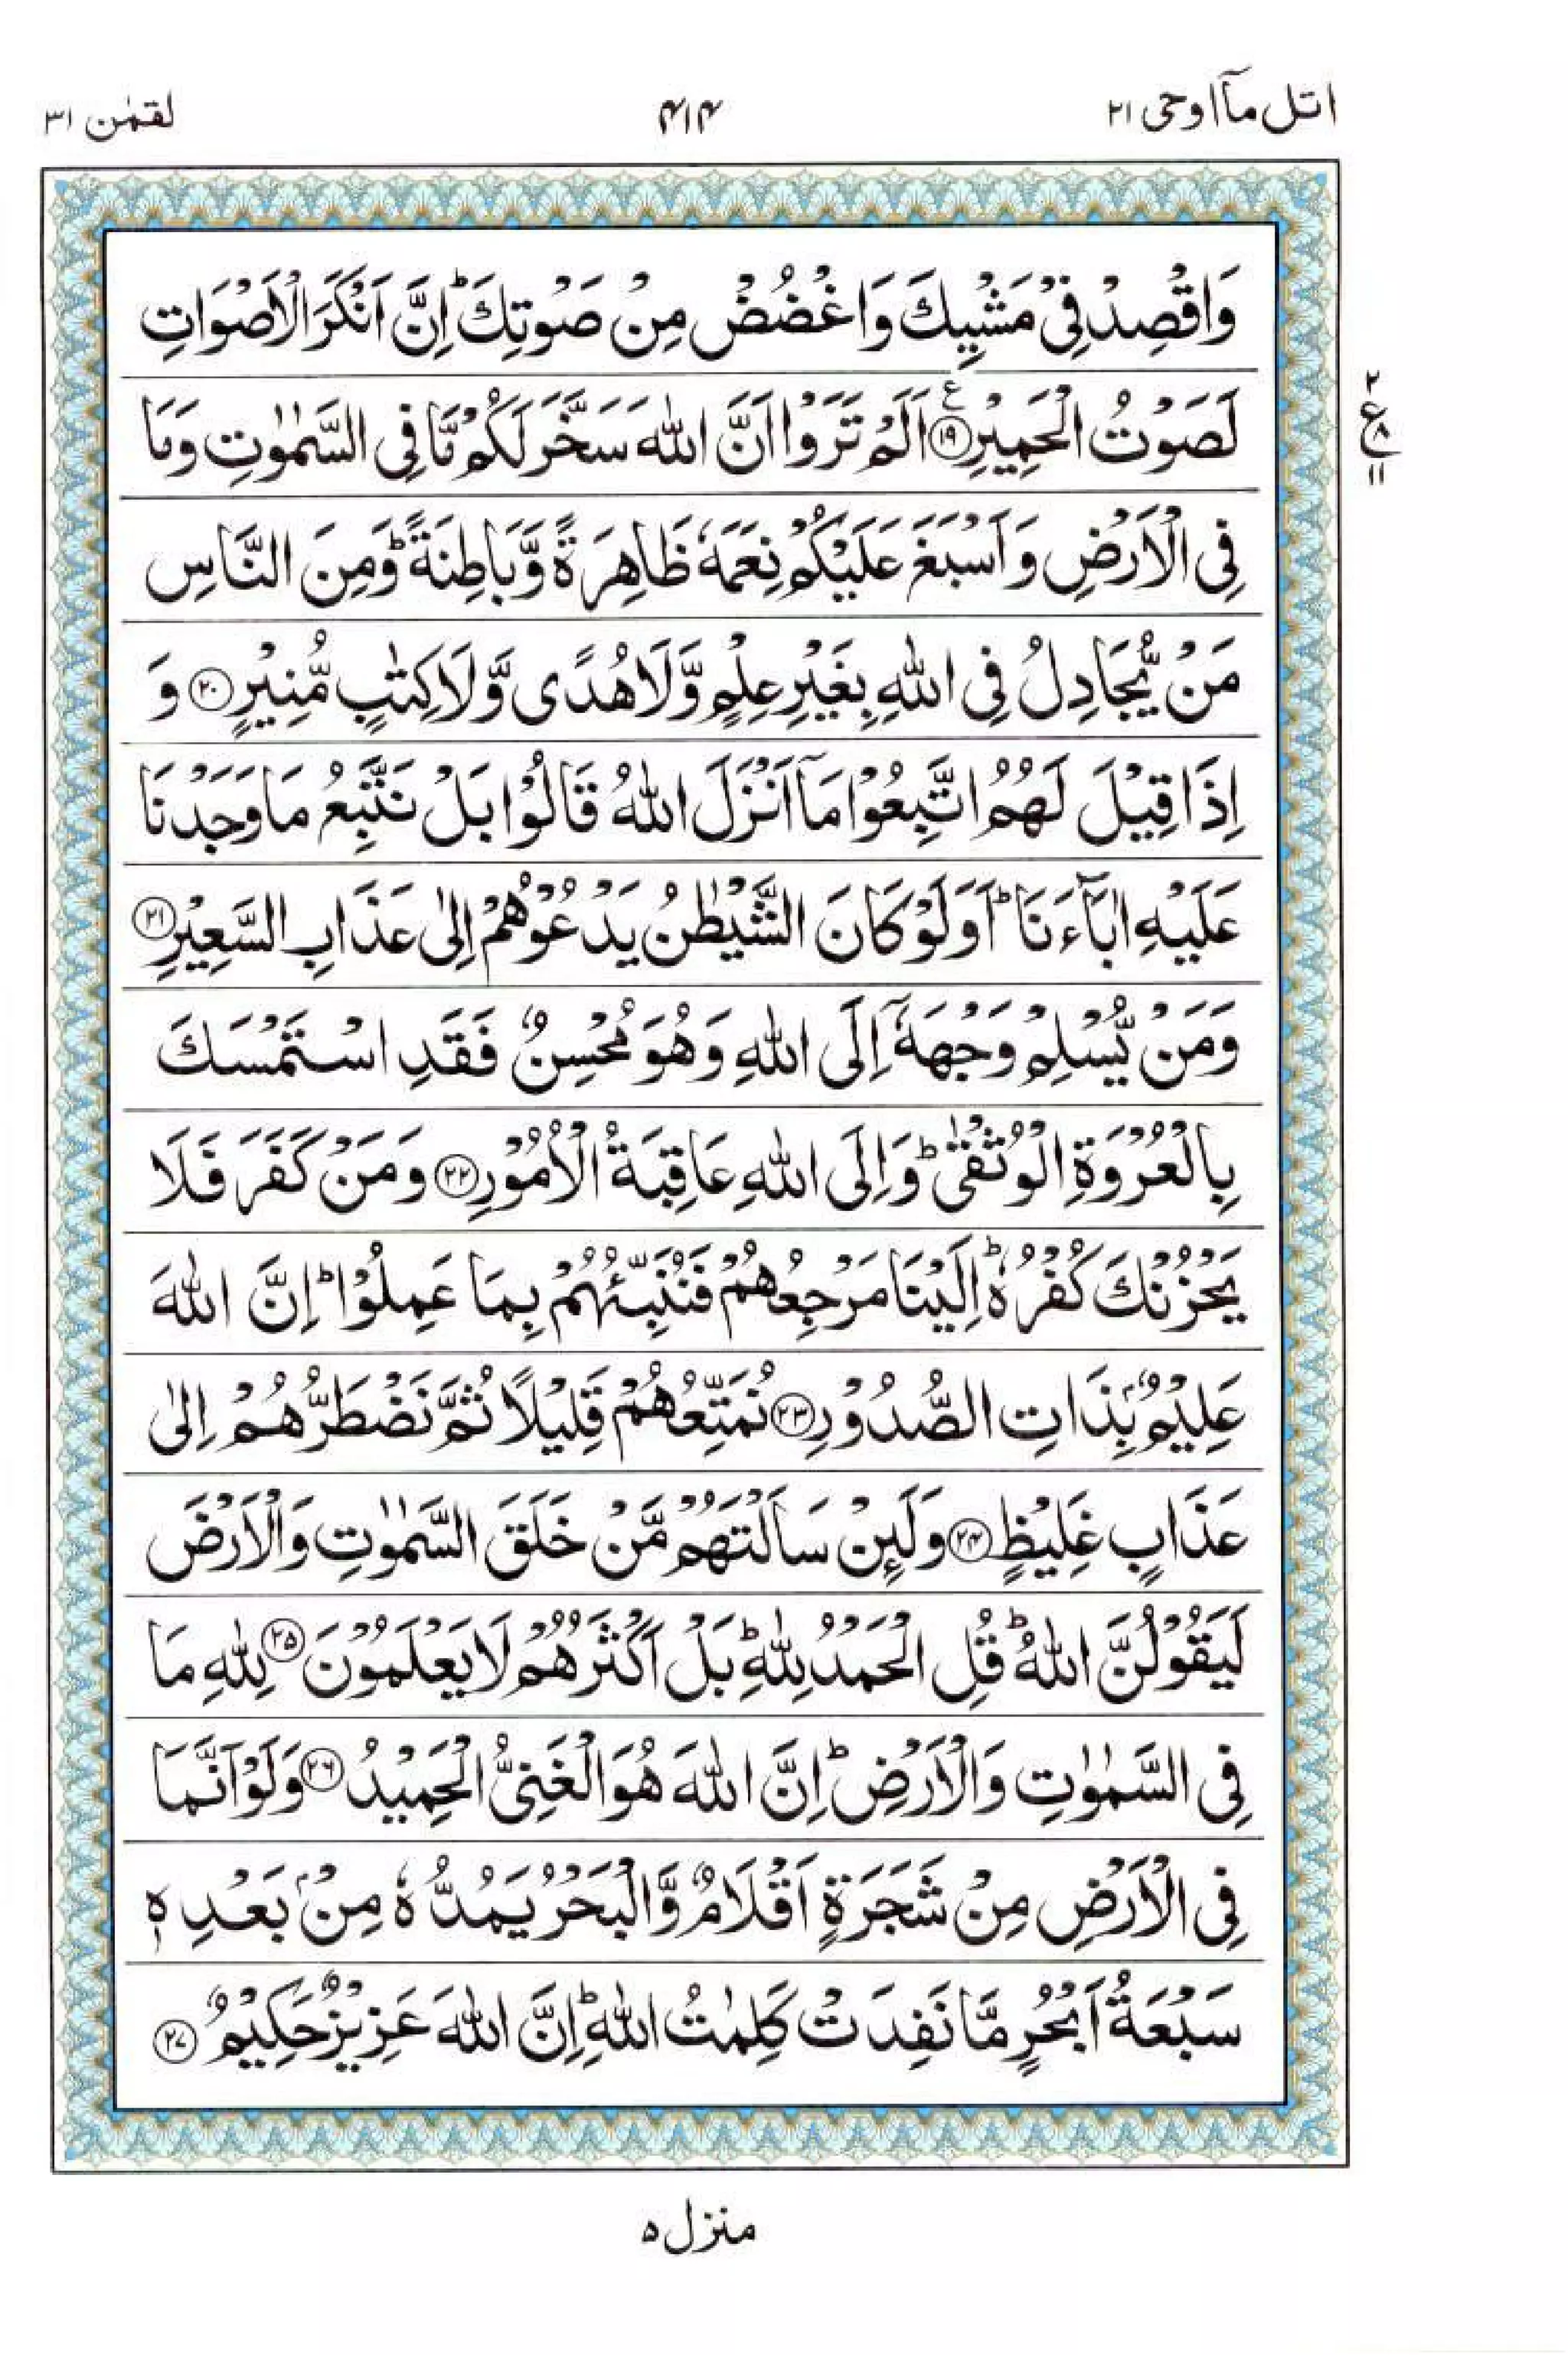 اتل مآ اوحی ۲۱
۴۱۴
لقمٰن ۳۱
وَاقْصِدْ فِيْ مَشْيِكَ وَاغْضُضْ مِنْ صَوْتِكَ ؕ اِنَّ اَنْكَرَ الْاَصْوَاتِ
لَصَوْتُ الْحَمِيْرِ ﴿۱۹﴾ ع اَلَمْ تَرَوْا اَنَّ اللّٰهَ سَخَّرَ لَكُمْ مَّا فِي السَّمٰوٰتِ وَمَا
فِي الْاَرْضِ وَاَسْبَغَ عَلَيْكُمْ نِعَمَهٗ ظَاهِرَةً وَّبَاطِنَةً ؕ وَمِنَ النَّاسِ
مَنْ يُّجَادِلُ فِي اللّٰهِ بِغَيْرِ عِلْمٍ وَّلَا هُدًى وَّلَا كِتٰبٍ مُّنِيْرٍ ﴿۲۰﴾ وَ
اِذَا قِيْلَ لَهُمُ اتَّبِعُوْا مَاۤ اَنْزَلَ اللّٰهُ قَالُوْا بَلْ نَتَّبِعُ مَا وَجَدْنَا
عَلَيْهِ اٰبَآءَنَا ؕ اَوَلَوْ كَانَ الشَّيْطٰنُ يَدْعُوْهُمْ اِلٰى عَذَابِ السَّعِيْرِ ﴿۲۱﴾
وَمَنْ يُّسْلِمْ وَجْهَهٗۤ اِلَى اللّٰهِ وَهُوَ مُحْسِنٌ فَقَدِ اسْتَمْسَكَ
بِالْعُرْوَةِ الْوُثْقٰى ؕ وَاِلَى اللّٰهِ عَاقِبَةُ الْاُمُوْرِ ﴿۲۲﴾ وَمَنْ كَفَرَ فَلَا
يَحْزُنْكَ كُفْرُهٗ ؕ اِلَيْنَا مَرْجِعُهُمْ فَنُنَبِّئُهُمْ بِمَا عَمِلُوْا ؕ اِنَّ اللّٰهَ
عَلِيْمٌۢ بِذَاتِ الصُّدُوْرِ ﴿۲۳﴾ نُمَتِّعُهُمْ قَلِيْلًا ثُمَّ نَضْطَرُّهُمْ اِلٰى
عَذَابٍ غَلِيْظٍ ﴿۲۴﴾ وَلَئِنْ سَاَلْتَهُمْ مَّنْ خَلَقَ السَّمٰوٰتِ وَالْاَرْضَ
لَيَقُوْلُنَّ اللّٰهُ ؕ قُلِ الْحَمْدُ لِلّٰهِ ؕ بَلْ اَكْثَرُهُمْ لَا يَعْلَمُوْنَ ﴿۲۵﴾ لِلّٰهِ مَا
فِي السَّمٰوٰتِ وَالْاَرْضِ ؕ اِنَّ اللّٰهَ هُوَ الْغَنِيُّ الْحَمِيْدُ ﴿۲۶﴾ وَلَوْ اَنَّمَا
فِي الْاَرْضِ مِنْ شَجَرَةٍ اَقْلَامٌ وَّالْبَحْرُ يَمُدُّهٗ مِنْۢ بَعْدِهٖ
سَبْعَةُ اَبْحُرٍ مَّا نَفِدَتْ كَلِمٰتُ اللّٰهِ ؕ اِنَّ اللّٰهَ عَزِيْزٌ حَكِيْمٌ ﴿۲۷﴾
۲
ع ۸
۱۱
منزل ۵